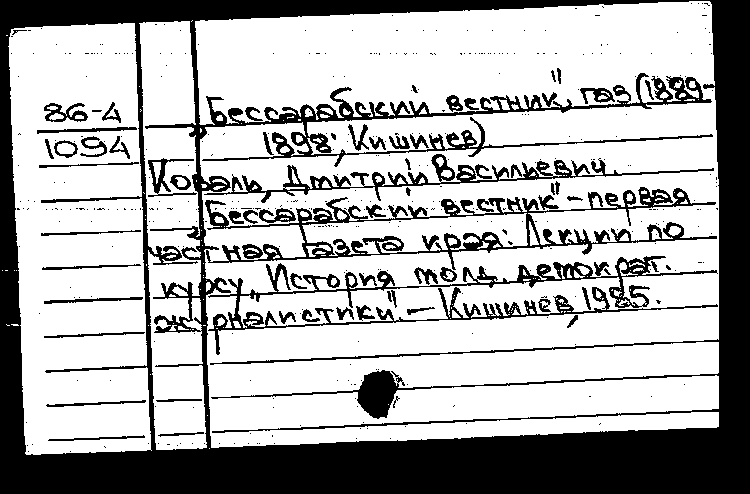 86-4
1094
„Бессарабский вестник", газ (1889-
1898; Кишинев)
Коваль, Дмитрий Васильевич.
„Бессарабский вестник" - первая
частная газета края: Лекции по
курсу „История молд. демократ.
журналистики". - Кишинев, 1985.